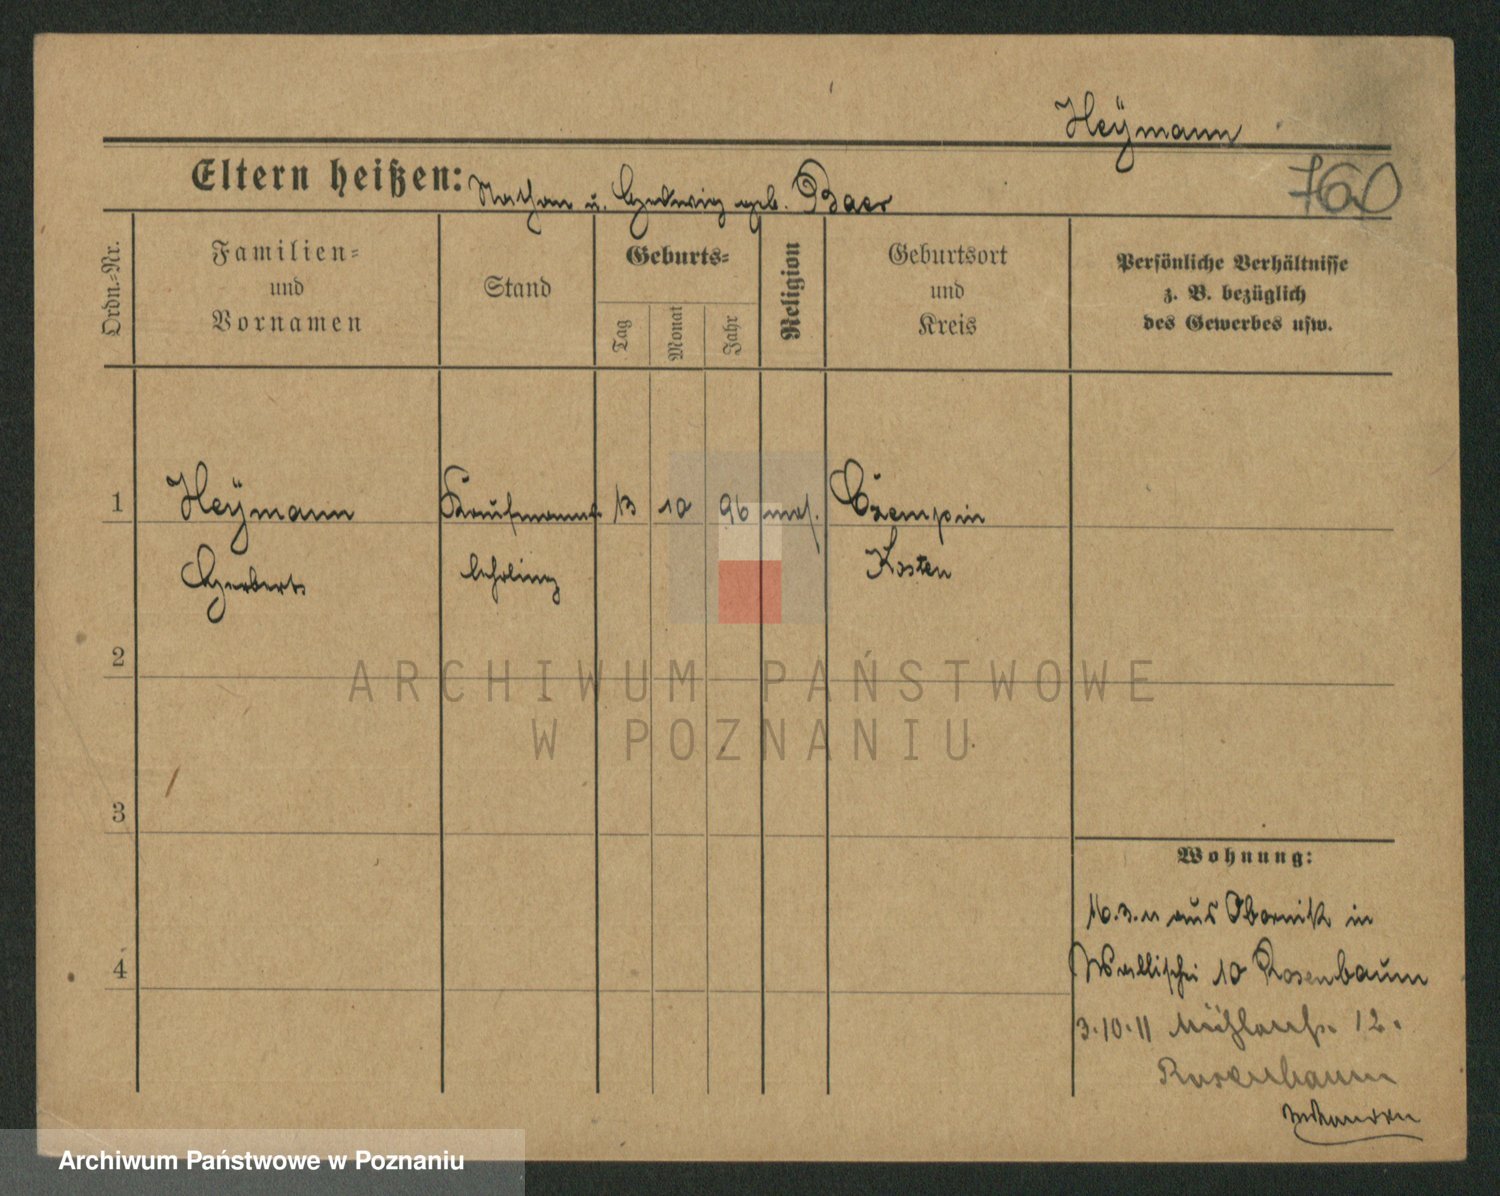 Heÿmann
Eltern heißen: Nathan u. Hedwig geb. Baer
760
Ordn.-Nr.
Familien-
und
Vornamen
Stand
Geburts-
Tag
Monat
Jahr
Religion
Geburtsort
und
Kreis
Persönliche Verhältnisse
z. B. bezüglich
des Gewerbes usw.
1
Heÿmann
Kaufmanns
13
10
96
mos.
Czempin
Herbert
lehrling
Kosten
2
ARCHIWUM PAŃSTWOWE
W POZNANIU
3
4
Wohnung:
16.3.11 aus Obornik in
Wallischei 10 Rosenbaum
3.10.11 Mühlenstr. 12.
Rosenbaum
Archiwum Państwowe w Poznaniu